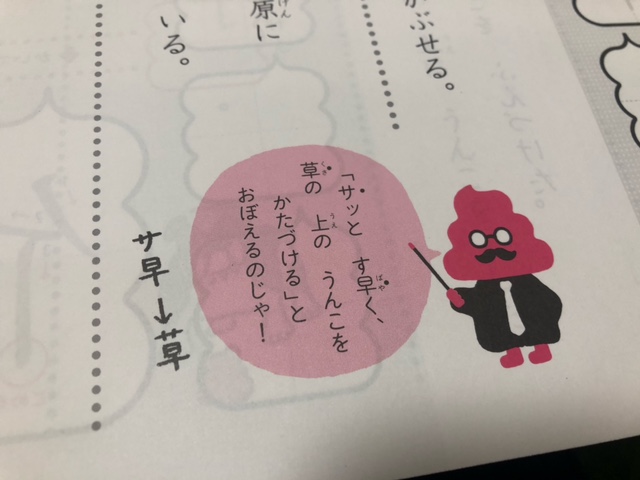 がぶせる。
原に
げん
いる。
「サッと す早く、
ばや
草の 上の うんこを
くさ うえ
かたづける」と
おぼえるのじゃ！
サ早→草